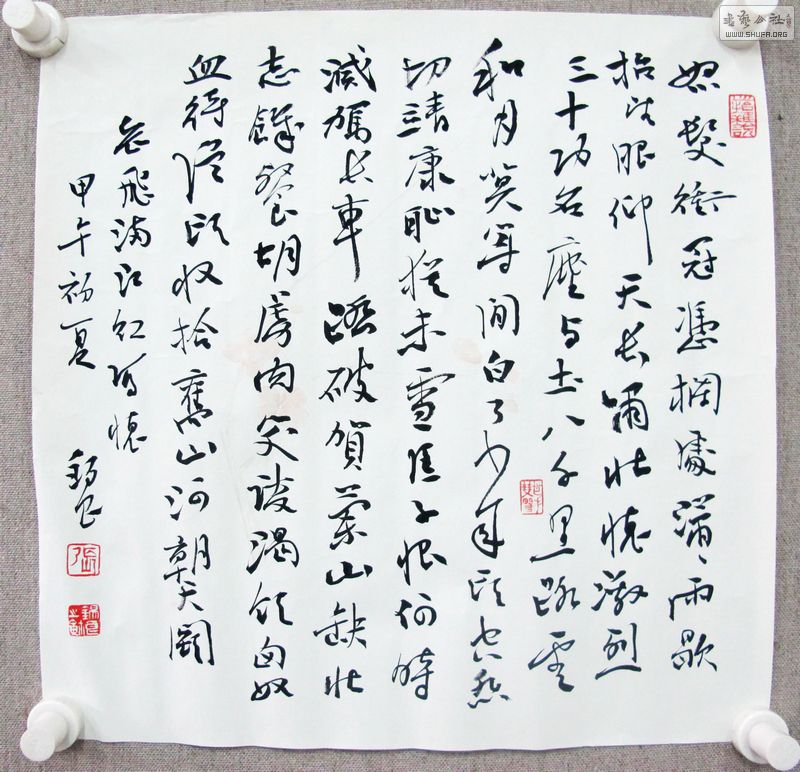 怒髮衝冠憑欄處瀟瀟雨歇
抬望眼仰天長嘯壯懷激烈
三十功名塵与土八千里路雲
和月莫等閒白了少年頭空悲
切靖康恥猶未雪臣子恨何時
滅駕長車踏破賀蘭山缺壯
志饑餐胡虜肉笑談渴飲匈奴
血待從頭收拾舊山河朝天闕
岳飛滿江紅寫懷
甲午初夏 錫良
張
WWW.SHUFA.ORG